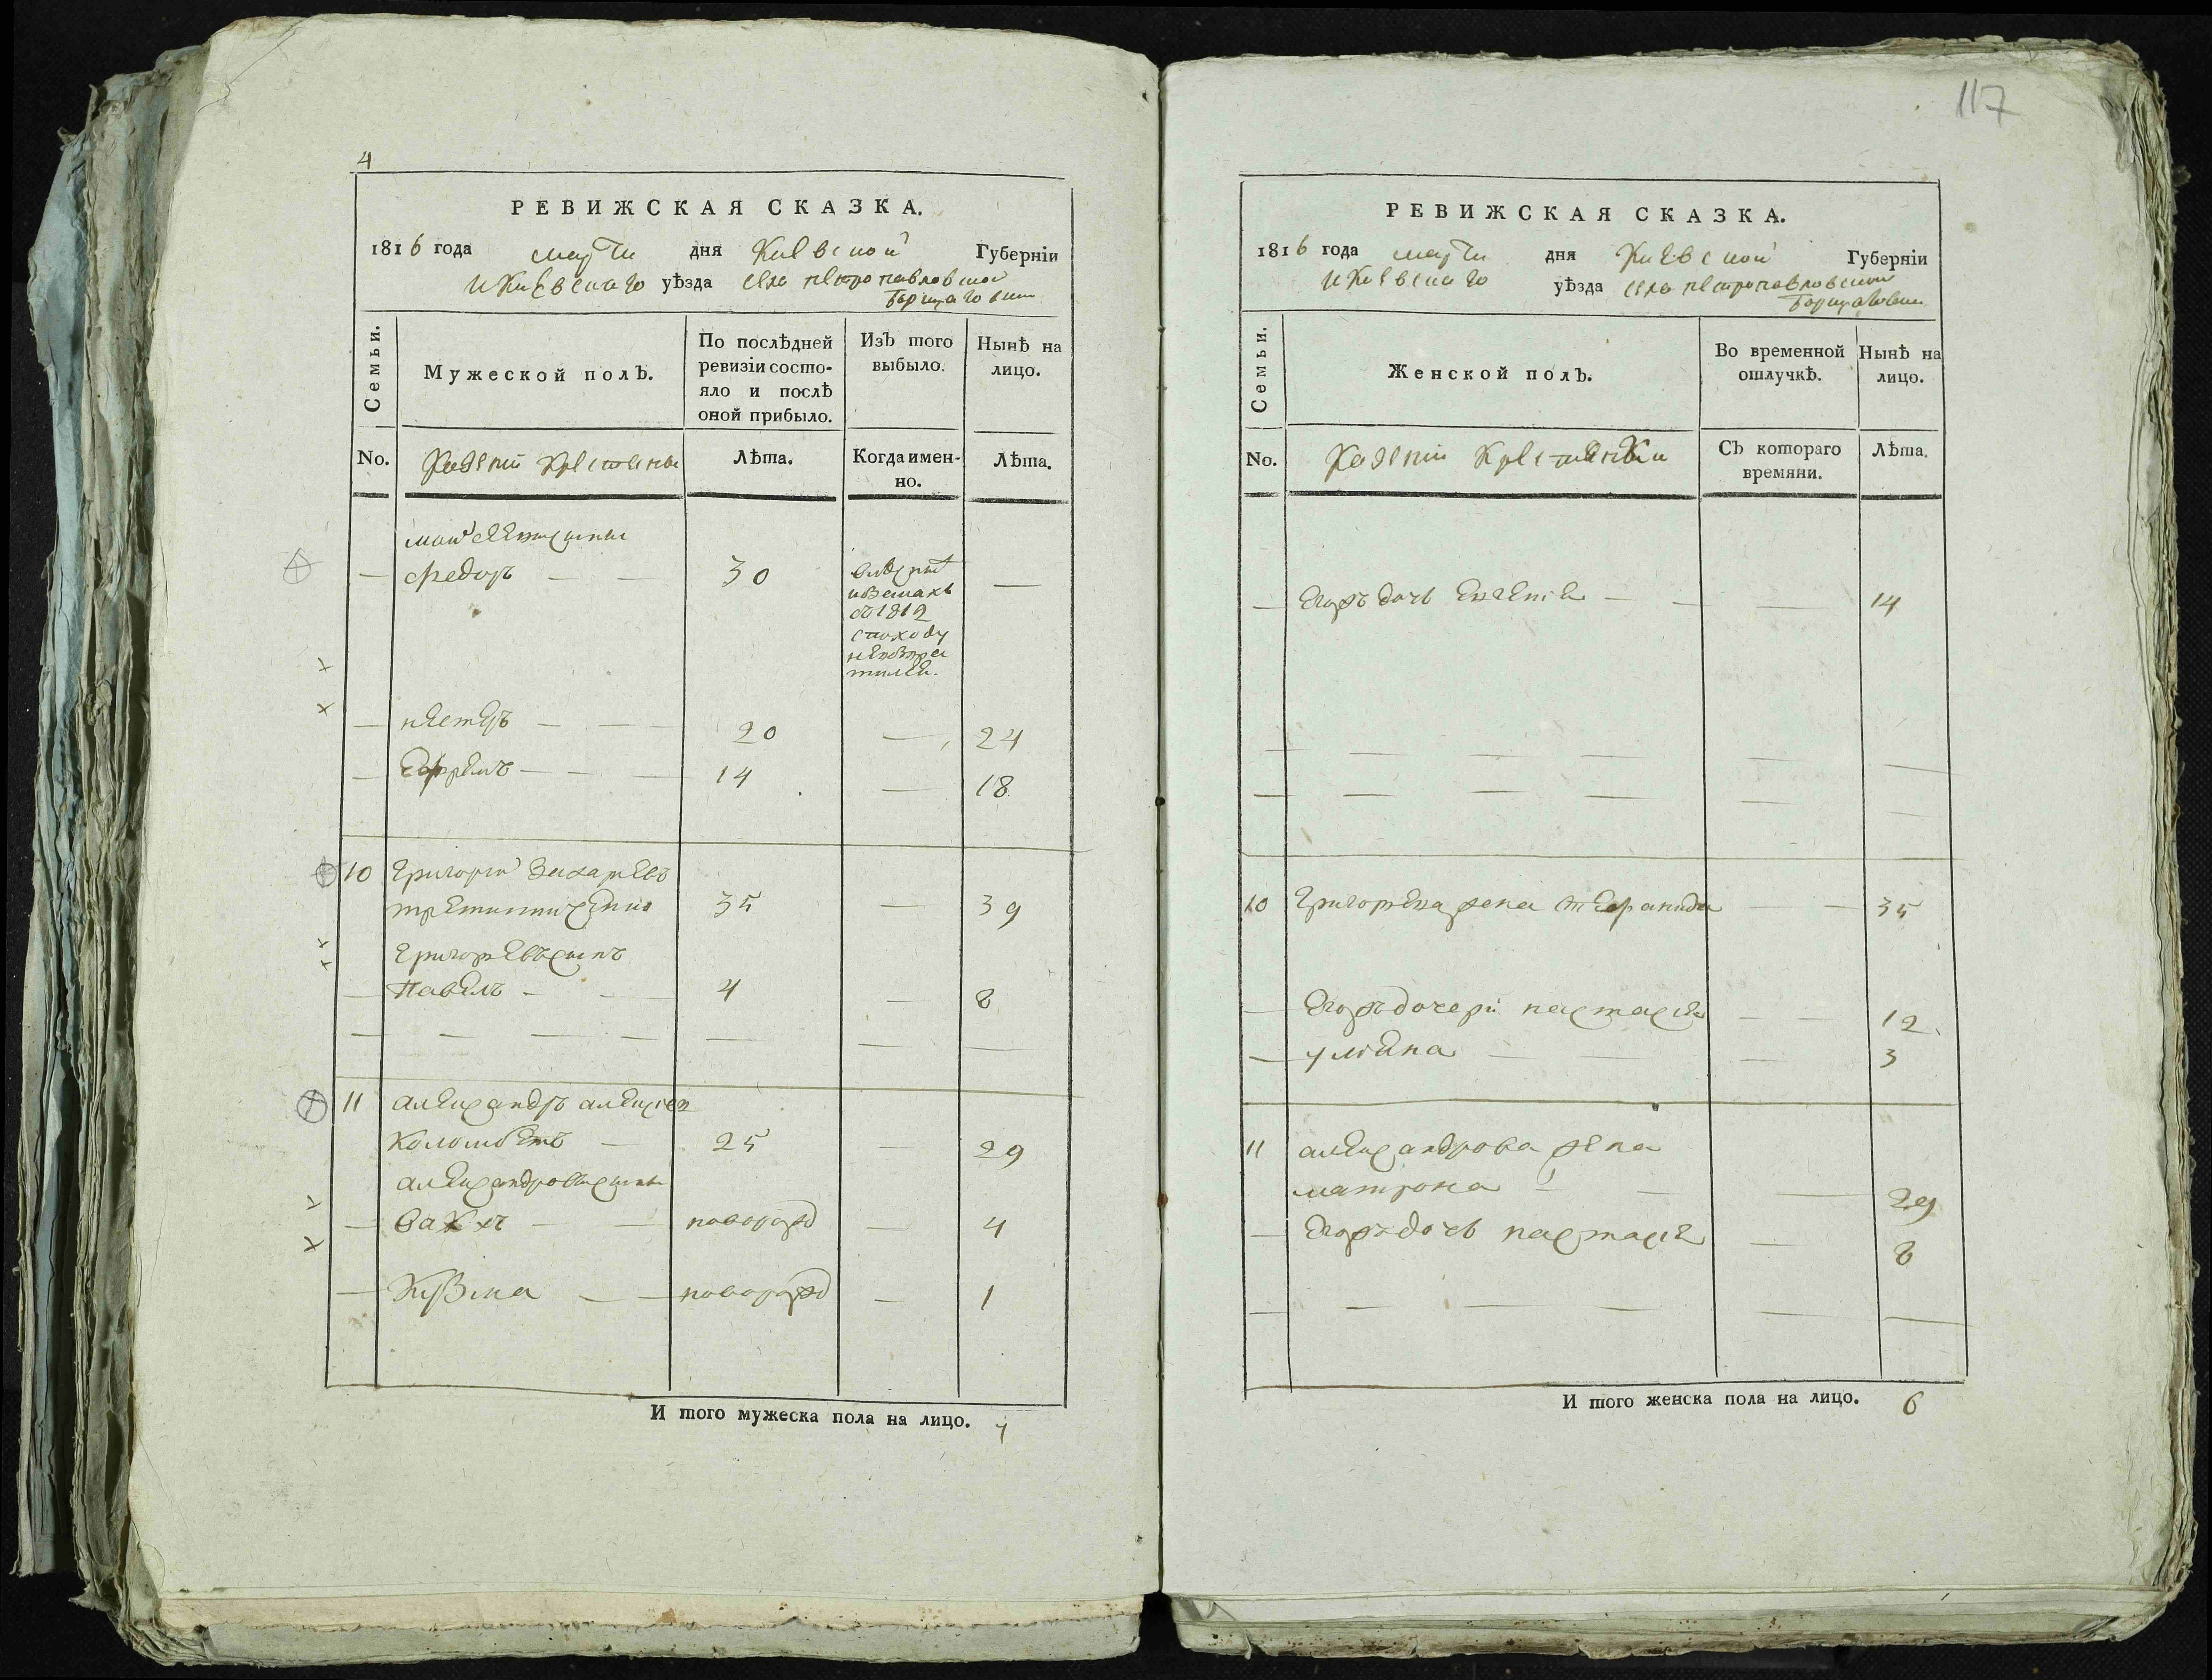 4
РЕВИЖСКАЯ СКАЗКА.
1816 года марта дня Киевской Губерніи
и Киевскаго уѣзда села петропавловской
Борщаговки
Семьи.
Мужеской полъ.
По послѣдней
ревизіи состо-
яло и послѣ
оной прибыло.
Изъ того
выбыло.
Нынѣ на
лицо.
No.
Казенніи Крестяны
Лѣта.
Когда имен-
но.
Лѣта.
— федоръ — — 30
въ
козакахъ
съ 1812
споходу
невозвра
тился.
—
— нестеръ — — 20 — 24
— Ефремъ — — — 14 — 18
10 Григорій Захариевъ
35 — 39
Григориевъ сынъ
— Павелъ — — 4 — 8
— — — — — — —
11 александръ алексіев
Коломіетъ — 25 — 29
александровы сыны
— Вакхъ — — новорожд — 4
— Кузма — — новорожд — 1
И того мужеска пола на лицо. 7
117
РЕВИЖСКАЯ СКАЗКА.
1816 года марта дня Киевской Губерніи
и Киевскаго уѣзда села петропавловской
Борщаговки
Семьи.
Женской полъ.
Во временной
отлучкѣ.
Нынѣ на
лицо.
No.
Казенніи Крестянки
Съ котораго
времяни.
Лѣта.
— Егожъ дочь Евгения — — — 14
— — — — — —
— — — — — —
10 Григориева жена — — 35
— Егожъ дочери настасия — — 12
— улиана — — — 3
11 александрова жена
матрона — — — 29
— Егожъ дочь настасія — 8
— — — — — —
И того женска пола на лицо. 6